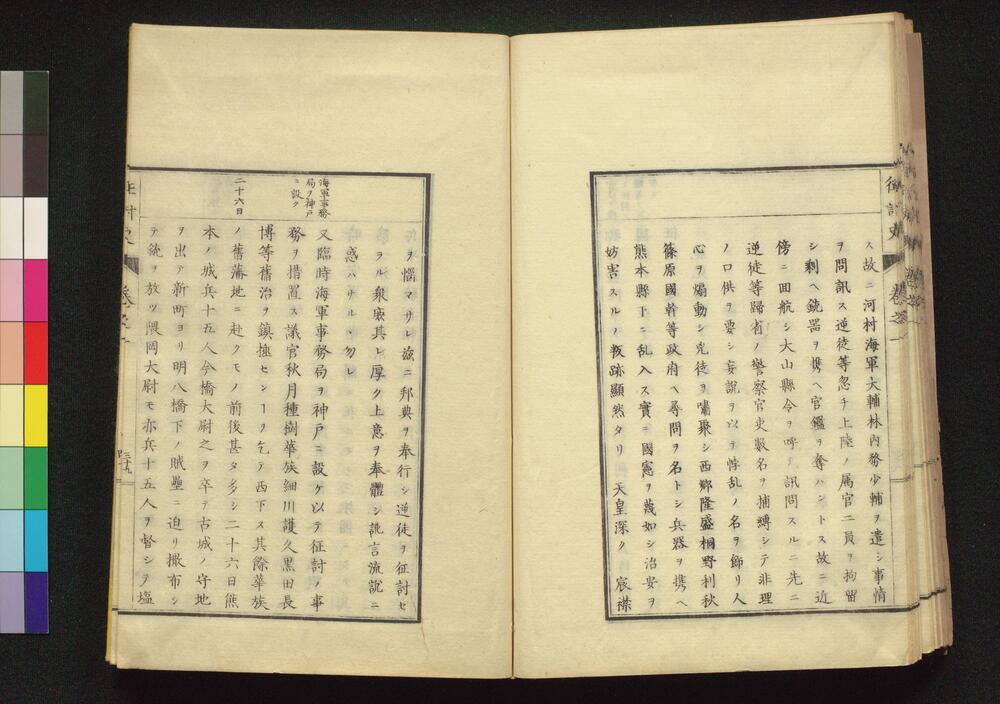 征討史 巻之一
ス故ニ河村海軍大輔林内務少輔ヲ遣シ事情
ヲ問訊ス逆徒等忽チ上陸ノ属官二員ヲ拘留
シ剰ヘ銃器ヲ携ヘ官艦ヲ奪ハントス故ニ近
傍ニ回航シ大山縣令ヲ呼テ訊問スルニ先ニ
逆徒等歸省ノ警察官吏數名ヲ捕縛シテ非理
ノ口供ヲ要シ妄説ヲ以テ悖乱ノ名ヲ飾リ人
心ヲ煽動シ兇徒ヲ嘯聚シ西郷隆盛桐野利秋
篠原國幹等政府ヘ尋問ヲ名トシ兵器ヲ携ヘ
熊本縣下ニ乱入ス實ニ國憲ヲ蔑如シ治安ヲ
妨害スルノ叛跡顯然タリ 天皇深ク 宸襟
ヲ惱マサレ茲ニ邦典ヲ奉行シ逆徒ヲ征討セ
ラル衆庶其レ厚ク上意ヲ奉體シ訛言流説ニ
惑ハサル、勿レ
海軍事務
局ヲ神戸
ニ設ク
又臨時海軍事務局ヲ神戸ニ設ケ以テ征討ノ事
務ヲ措置ス議官秋月種樹華族細川護久黒田長
博等舊治ヲ鎮撫センヿヲ乞テ西下ス其際華族
二十六日
ノ舊藩地ニ赴クモノ前後甚タ多シ二十六日熊
本ノ城兵十五人今橋大尉之ヲ卒テ古城ノ守地
ヲ出テ新町ヨリ明八橋下ノ賊壘ニ迫リ撒布シ
テ銃ヲ放ツ隈岡大尉モ亦兵十五人ヲ督シテ塩
征討史 巻之一
三十九